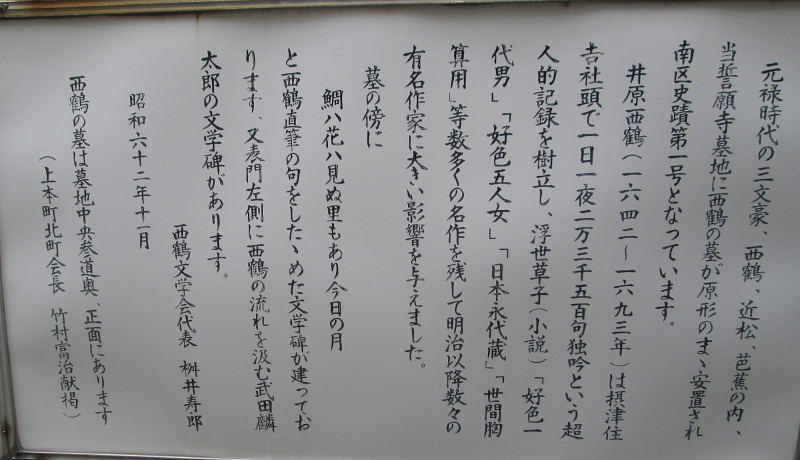 元禄時代の三文豪、西鶴、近松、芭蕉の内、
当誓願寺墓地に西鶴の墓が原形のまゝ安置され
南区史蹟第一号となっています。
井原西鶴(一六四二〜一六九三年)は摂津住
吉社頭で一日一夜二万三千五百句独吟という超
人的記録を樹立し、浮世草子(小説)「好色一
代男」「好色五人女」「日本永代蔵」「世間胸
算用」等数多くの名作を残して明治以降数々の
有名作家に大きい影響を与えました。
墓の傍に
鯛ハ花ハ見ぬ里もあり今日の月
と西鶴直筆の句をしたゝめた文学碑が建ってお
ります、又表門左側に西鶴の流れを汲む武田麟
太郎の文学碑があります。
西鶴文学会代表 桝井寿郎
昭和六十二年十一月
西鶴の墓は墓地中央参道奥、正面にあります
(上本町北町会長 竹村富治献掲)